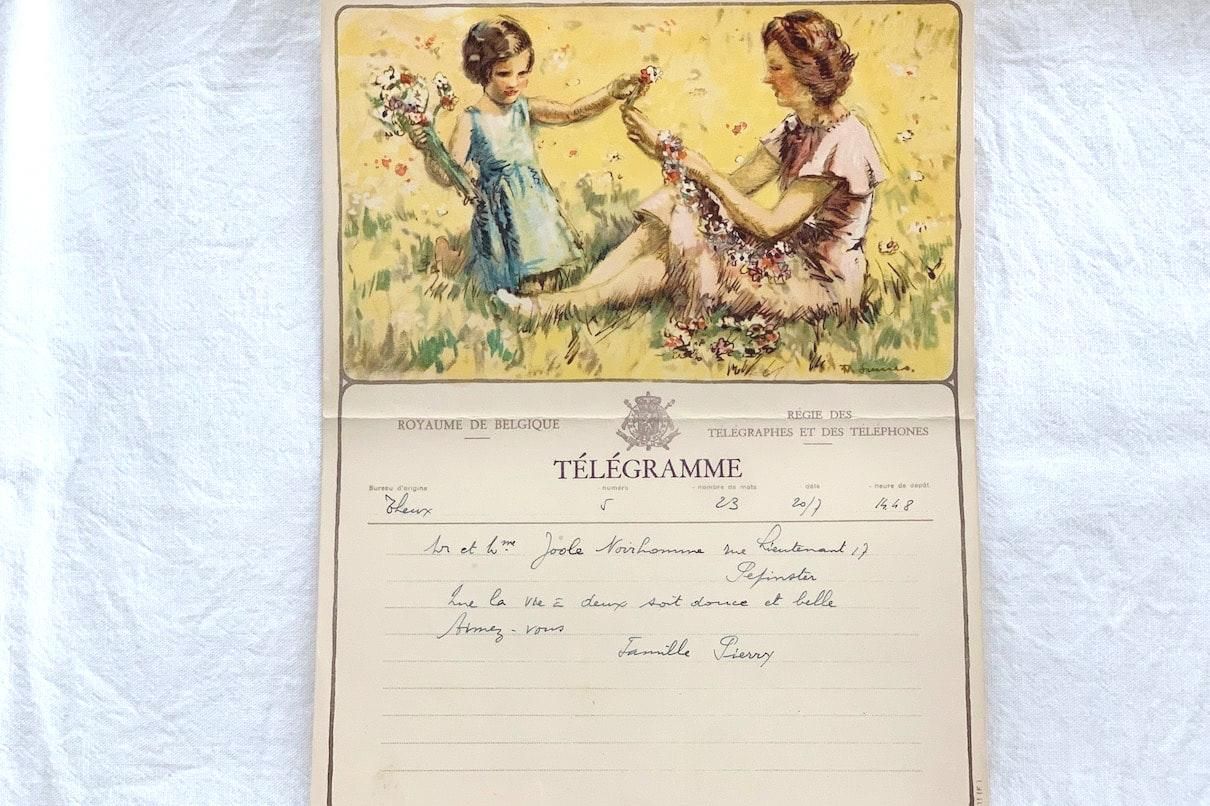 ROYAUME DE BELGIQUE
RÉGIE DES
TÉLÉGRAPHES ET DES TÉLÉPHONES
TÉLÉGRAMME
Bureau d'origine numéro nombre de mots date heure de depôt
Theux 5 23 20/7 14.48
Mr et Mme Joole Noirhomme rue Lieutenant 17
Pepinster
Que la vie à deux soit douce et belle
Aimez-vous
Famille Pierry